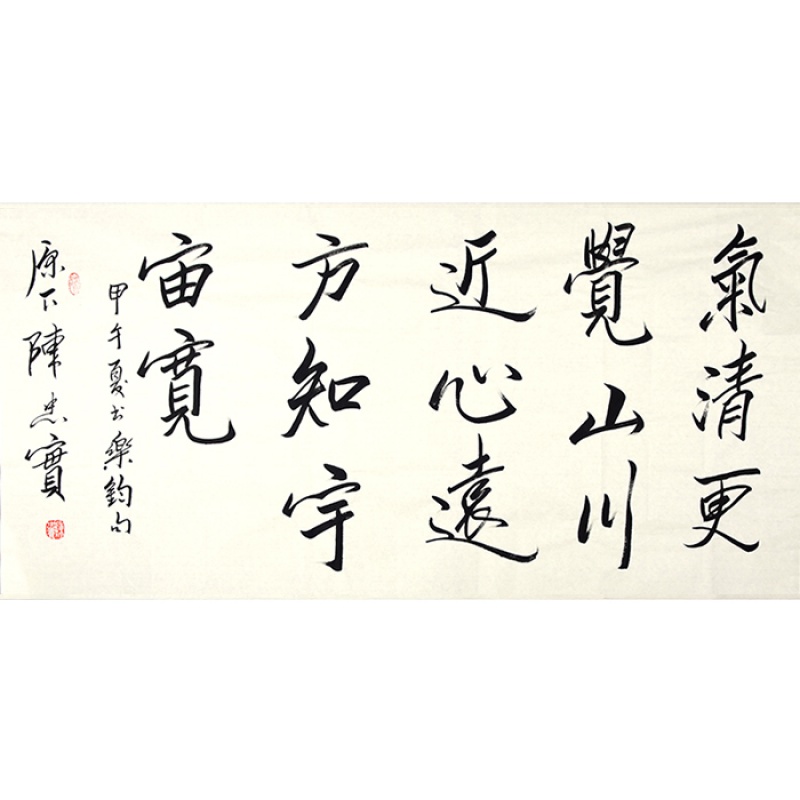 氣清更
覺山川
近心遠
方知宇
宙寬
甲午夏書樂鈞句
原下陳忠實